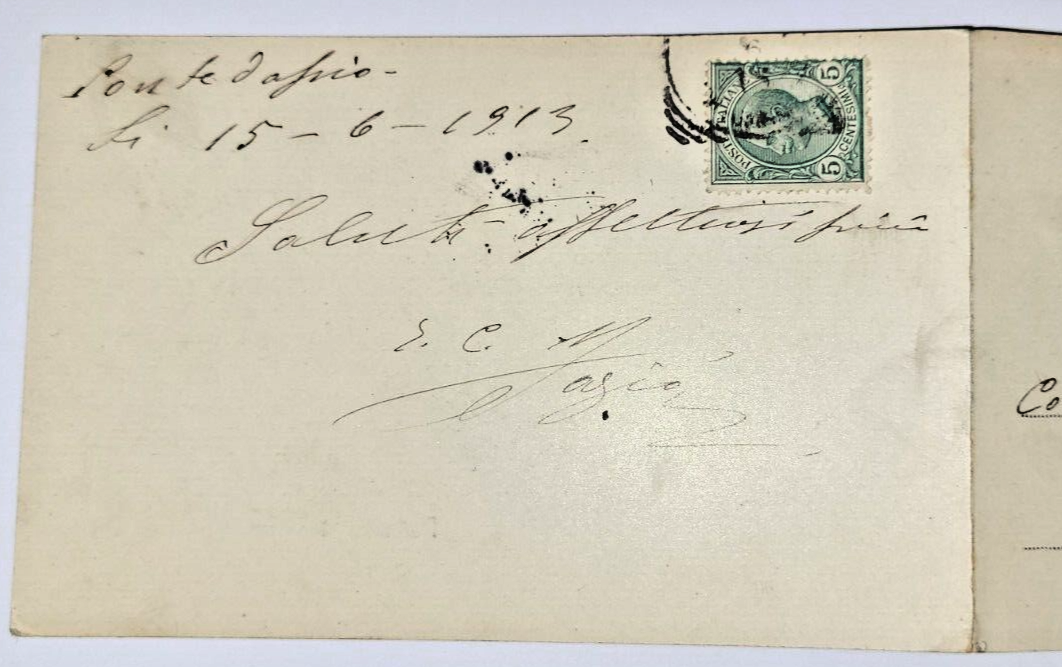 Pontedassio -
li 15 - 6 - 1913
POSTE ITALIANE
5 CENTESIMI 5
Saluti affettuosi
E. C. N
Co